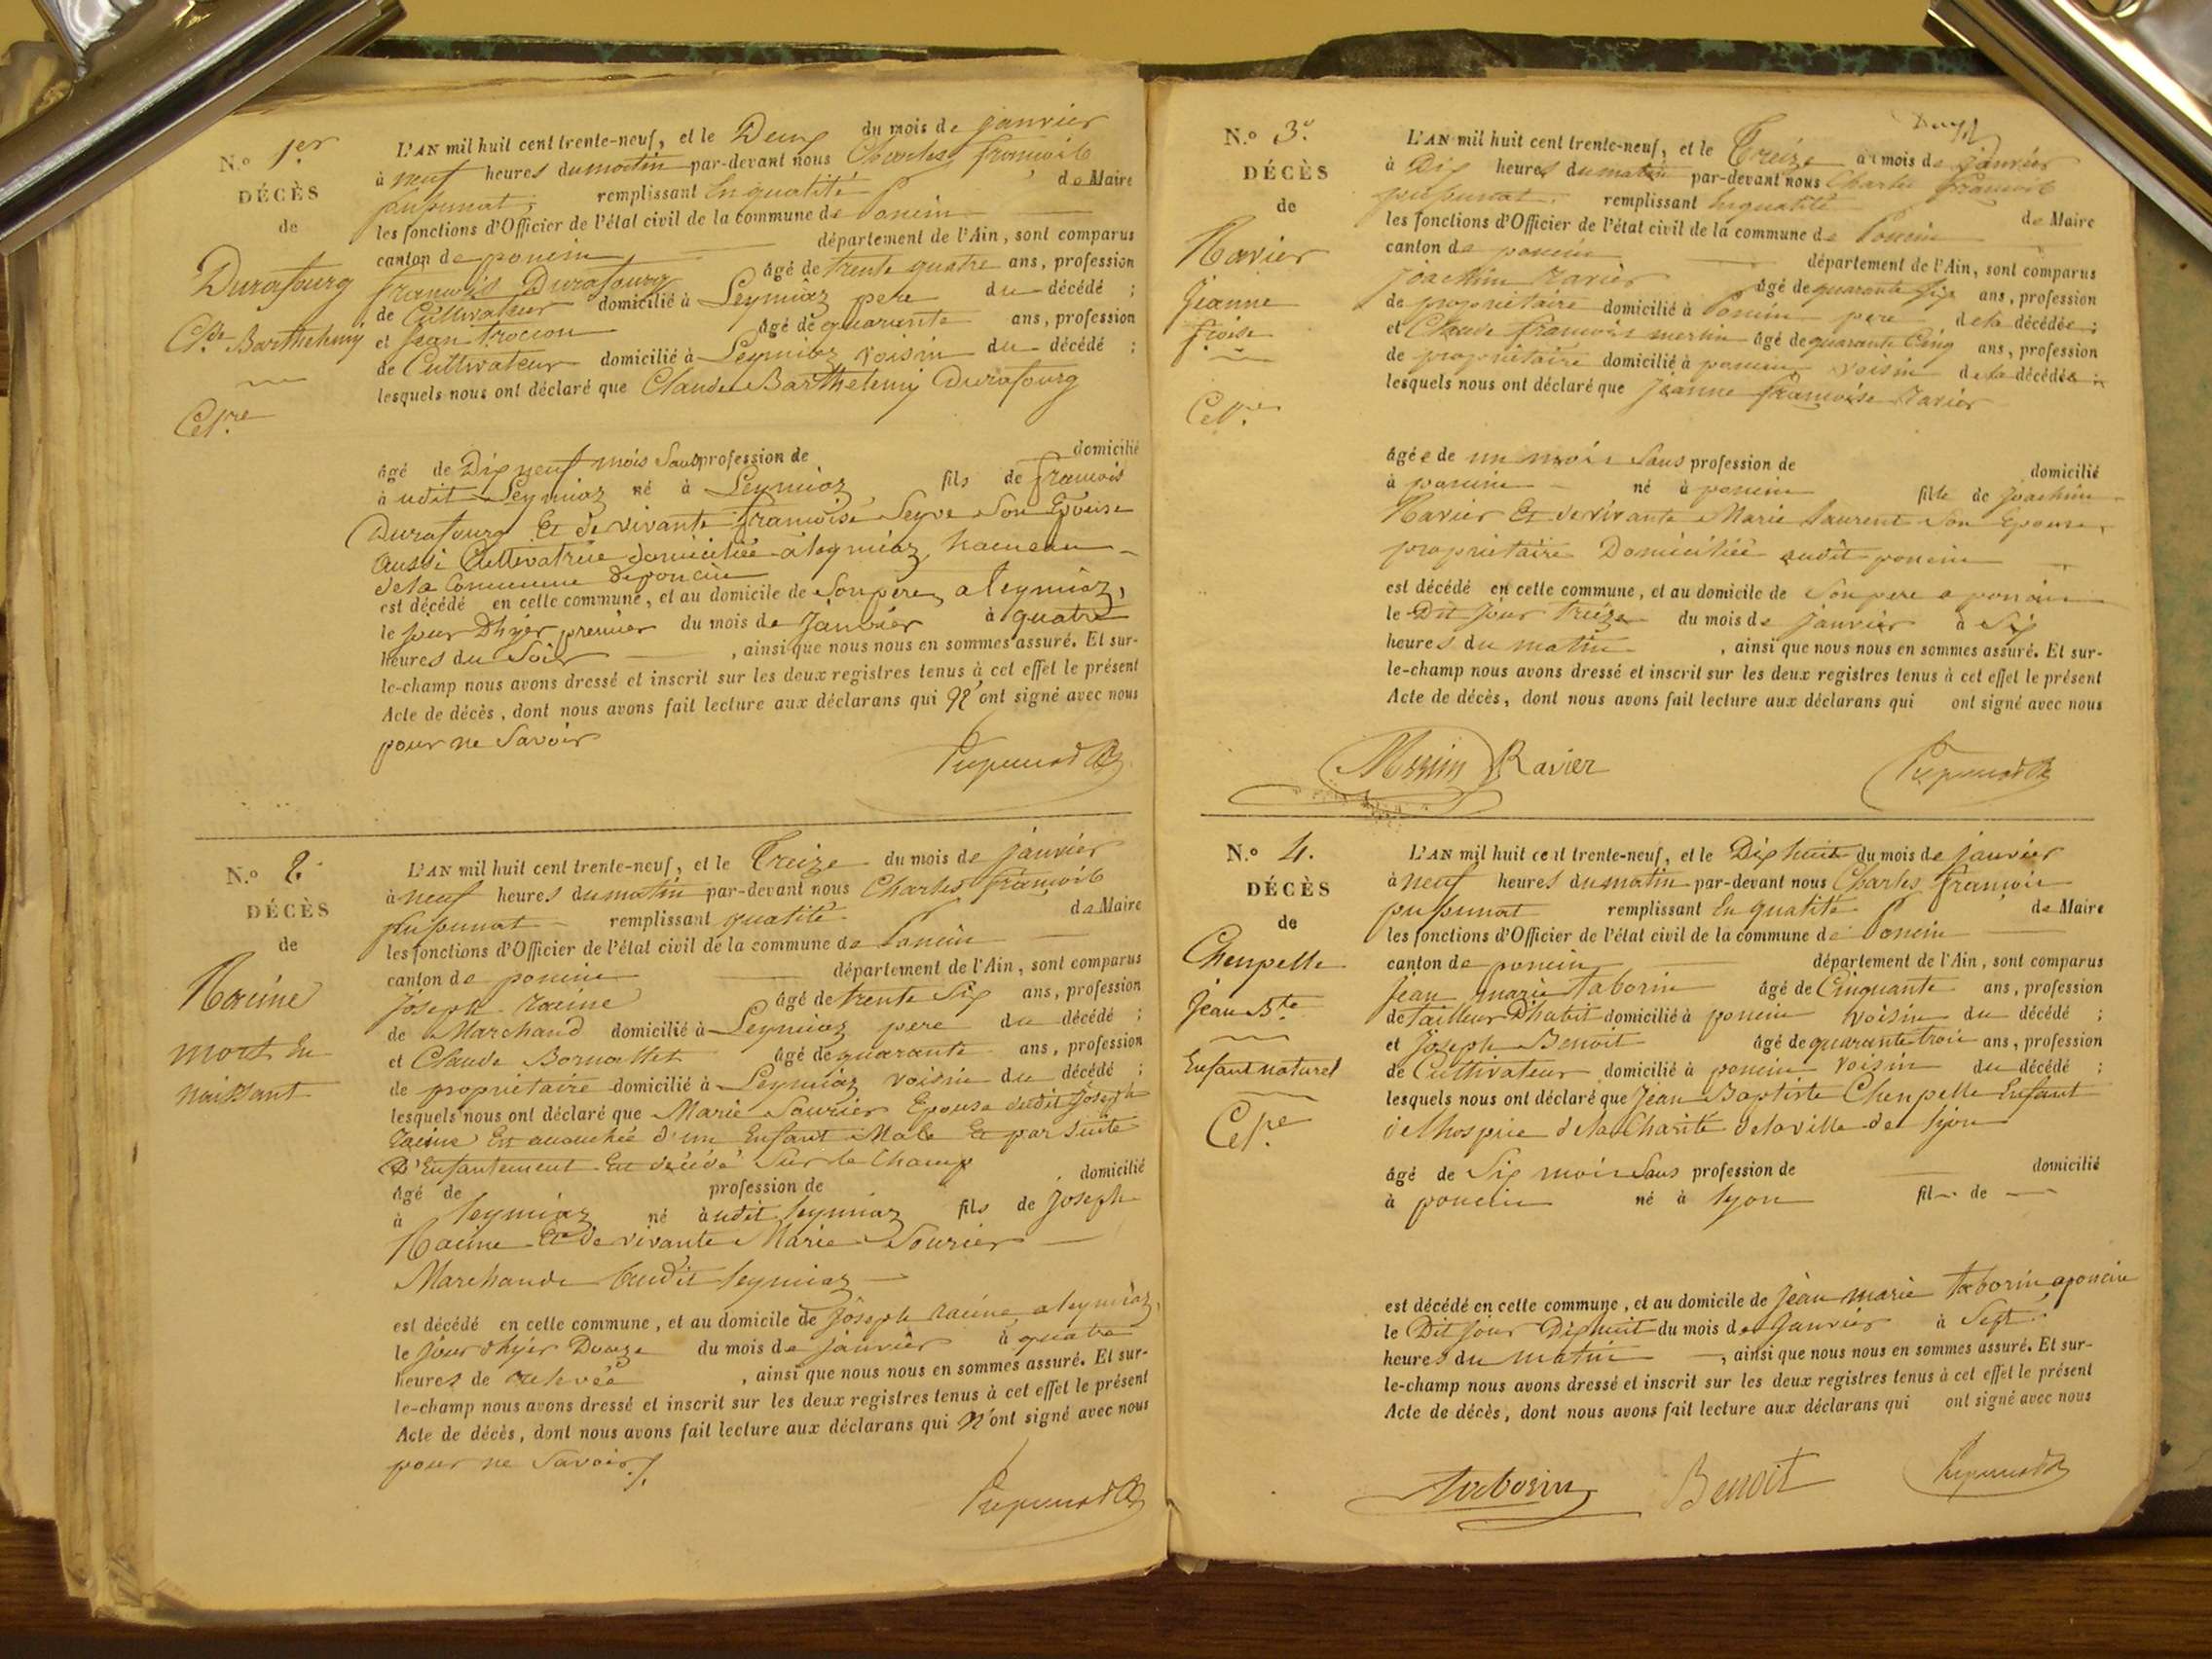 N.o 1.er
DÉCÈS
de
Durafourg
Cl.de Barthelemy
Cel.re
L'AN mil huit cent trente-neuf, et le Deux du mois de janvier
à neuf heures du matin par-devant nous Charles françois
pupunat, remplissant En qualité de Maire
les fonctions d'Officier de l'état civil de la commune de Poncin
canton de poncin département de l'Ain, sont comparus
françois Durafourg âgé de trente quatre ans, profession
de Cultivateur domicilié à Leymiaz pere du décédé ;
et Jean trocion âgé de quarante ans, profession
de Cultivateur domicilié à Leymiaz voisin du décédé ;
lesquels nous ont déclaré que Claude Barthelemy Durafourg
âgé de Dix neuf mois Sans profession de domicilié
à udit Leymiaz né à Leymiaz, fils de françois
Durafourg Et de vivante françoise Seyve Son Epouse
aussi Cultivatrice domiciliée à leymiaz, hameau
de la Commune de poncin
est décédé en cette commune, et au domicile de Son pere, a leymiaz,
le jour D'hyer premier du mois de Janvier à quatre
heures du Soir , ainsi que nous nous en sommes assuré. Et sur-
le-champ nous avons dressé et inscrit sur les deux registres tenus à cet effet le présent
Acte de décès, dont nous avons fait lecture aux déclarans qui N'ont signé avec nous
pour ne Savoir
Pupunat
N.o 2.
DÉCÈS
de
Racine
mort En
naissant
L'AN mil huit cent trente-neuf, et le Treize du mois de janvier
à neuf heures du matin par-devant nous Charles françois
pupunat remplissant qualité de Maire
les fonctions d'Officier de l'état civil de la commune de Poncin
canton de poncin département de l'Ain, sont comparus
Joseph racine âgé de trente Six ans, profession
de Marchand domicilié à Leymiaz pere du décédé ;
et Claude Bornattet âgé de quarante ans, profession
de propriétaire domicilié à Leymiaz voisin du décédé ;
lesquels nous ont déclaré que Marie Sourier Epouse dudit Joseph
racine Est accouchée d'un Enfant Male Et par suite
D'Enfantement Est décédé Sur le Champ
âgé de profession de domicilié
à leymiaz né àudit leymiaz fils de Joseph
Racine Et de vivante Marie Sourier
Marchande leymiaz
est décédé en cette commune, et au domicile de Joseph racine, a leymiaz,
le jour d'hyer Douze du mois de janvier à quatre
heures de relevée , ainsi que nous nous en sommes assuré. Et sur-
le-champ nous avons dressé et inscrit sur les deux registres tenus à cet effet le présent
Acte de décès, dont nous avons fait lecture aux déclarans qui N'ont signé avec nous
pour ne Savoir
Pupunat
N.o 3.e
DÉCÈS
de
Ravier
Jeanne
f.çoise
Cel.re
L'AN mil huit cent trente-neuf, et le Treize du mois de Janvier
à Dix heures du matin par-devant nous Charles françois
pupunat, remplissant En qualité de Maire
les fonctions d'Officier de l'état civil de la commune de Poncin
canton de poncin département de l'Ain, sont comparus
Joachim ravier âgé de quarante Six ans, profession
de propriétaire domicilié à Poncin pere de la décédée ;
et Claude françois merlin âgé de quarante Cinq ans, profession
de propriétaire domicilié à poncin voisin de la décédée ;
lesquels nous ont déclaré que Jeanne françoise Ravier
âgée de un mois Sans profession de domicilié
à poncin né à poncin fille de Joachim
Ravier Et de vivante Marie laurent Son Epouse,
propriétaire Domiciliée audit poncin
est décédé en cette commune, et au domicile de Son pere a poncin
le Dit jour treize du mois de janvier à Six
heures du matin , ainsi que nous nous en sommes assuré. Et sur-
le-champ nous avons dressé et inscrit sur les deux registres tenus à cet effet le présent
Acte de décès, dont nous avons fait lecture aux déclarans qui ont signé avec nous
Ravier Pupunat
N.o 4.
DÉCÈS
de
Chenpelle
Jean B.te
Enfant naturel
Cel.re
L'AN mil huit cent trente-neuf, et le Dix huit du mois de janvier
à neuf heures du matin par-devant nous Charles françois
pupunat remplissant En qualité de Maire
les fonctions d'Officier de l'état civil de la commune de Poncin
canton de poncin département de l'Ain, sont comparus
Jean marie taborin âgé de Cinquante ans, profession
de tailleur D'habit domicilié à poncin voisin du décédé ;
et Joseph Benoit âgé de quarante trois ans, profession
de Cultivateur domicilié à poncin voisin du décédé ;
lesquels nous ont déclaré que Jean Baptiste Chenpelle Enfant
de l'hospice de la Charité de la ville de lyon
âgé de Six mois Sans profession de domicilié
à poncin né à lyon fil de
est décédé en cette commune, et au domicile de Jean marie taborin, a poncin
le Dit jour Dix huit du mois de Janvier à Sept
heures du matin , ainsi que nous nous en sommes assuré. Et sur-
le-champ nous avons dressé et inscrit sur les deux registres tenus à cet effet le présent
Acte de décès, dont nous avons fait lecture aux déclarans qui ont signé avec nous
taborin Benoit Pupunat